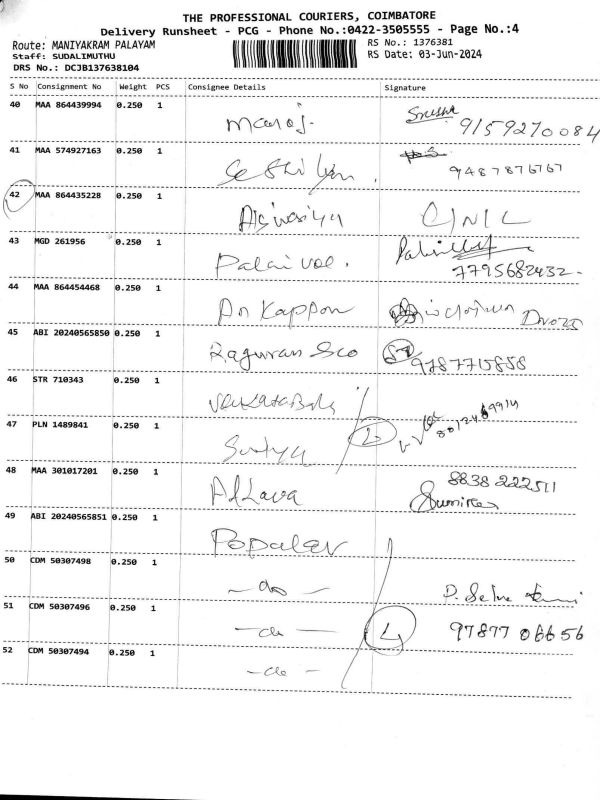 THE PROFESSIONAL COURIERS, COIMBATORE
Delivery Runsheet - PCG - Phone No.:0422-3505555 - Page No.:4
Route: MANIYAKRAM PALAYAM
RS No.: 1376381
Staff: SUDALIMUTHU
RS Date: 03-Jun-2024
DRS No.: DCJB137638104
S No Consignment No Weight PCS Consignee Details Signature
40 MAA 864439994 0.250 1 Manoj. 9159270084
41 MAA 574927163 0.250 1 9487876767
42 MAA 864435228 0.250 1
43 MGD 261956 0.250 1 7795682432
44 MAA 864454468 0.250 1
45 ABI 20240565850 0.250 1 9787715858
46 STR 710343 0.250 1
47 PLN 1489841 0.250 1 Surya 2
48 MAA 301017201 0.250 1 8838222511
49 ABI 20240565851 0.250 1 Popular
50 CDM 50307498 0.250 1 -do-
51 CDM 50307496 0.250 1 -do- 4 9787706656
52 CDM 50307494 0.250 1 -do-